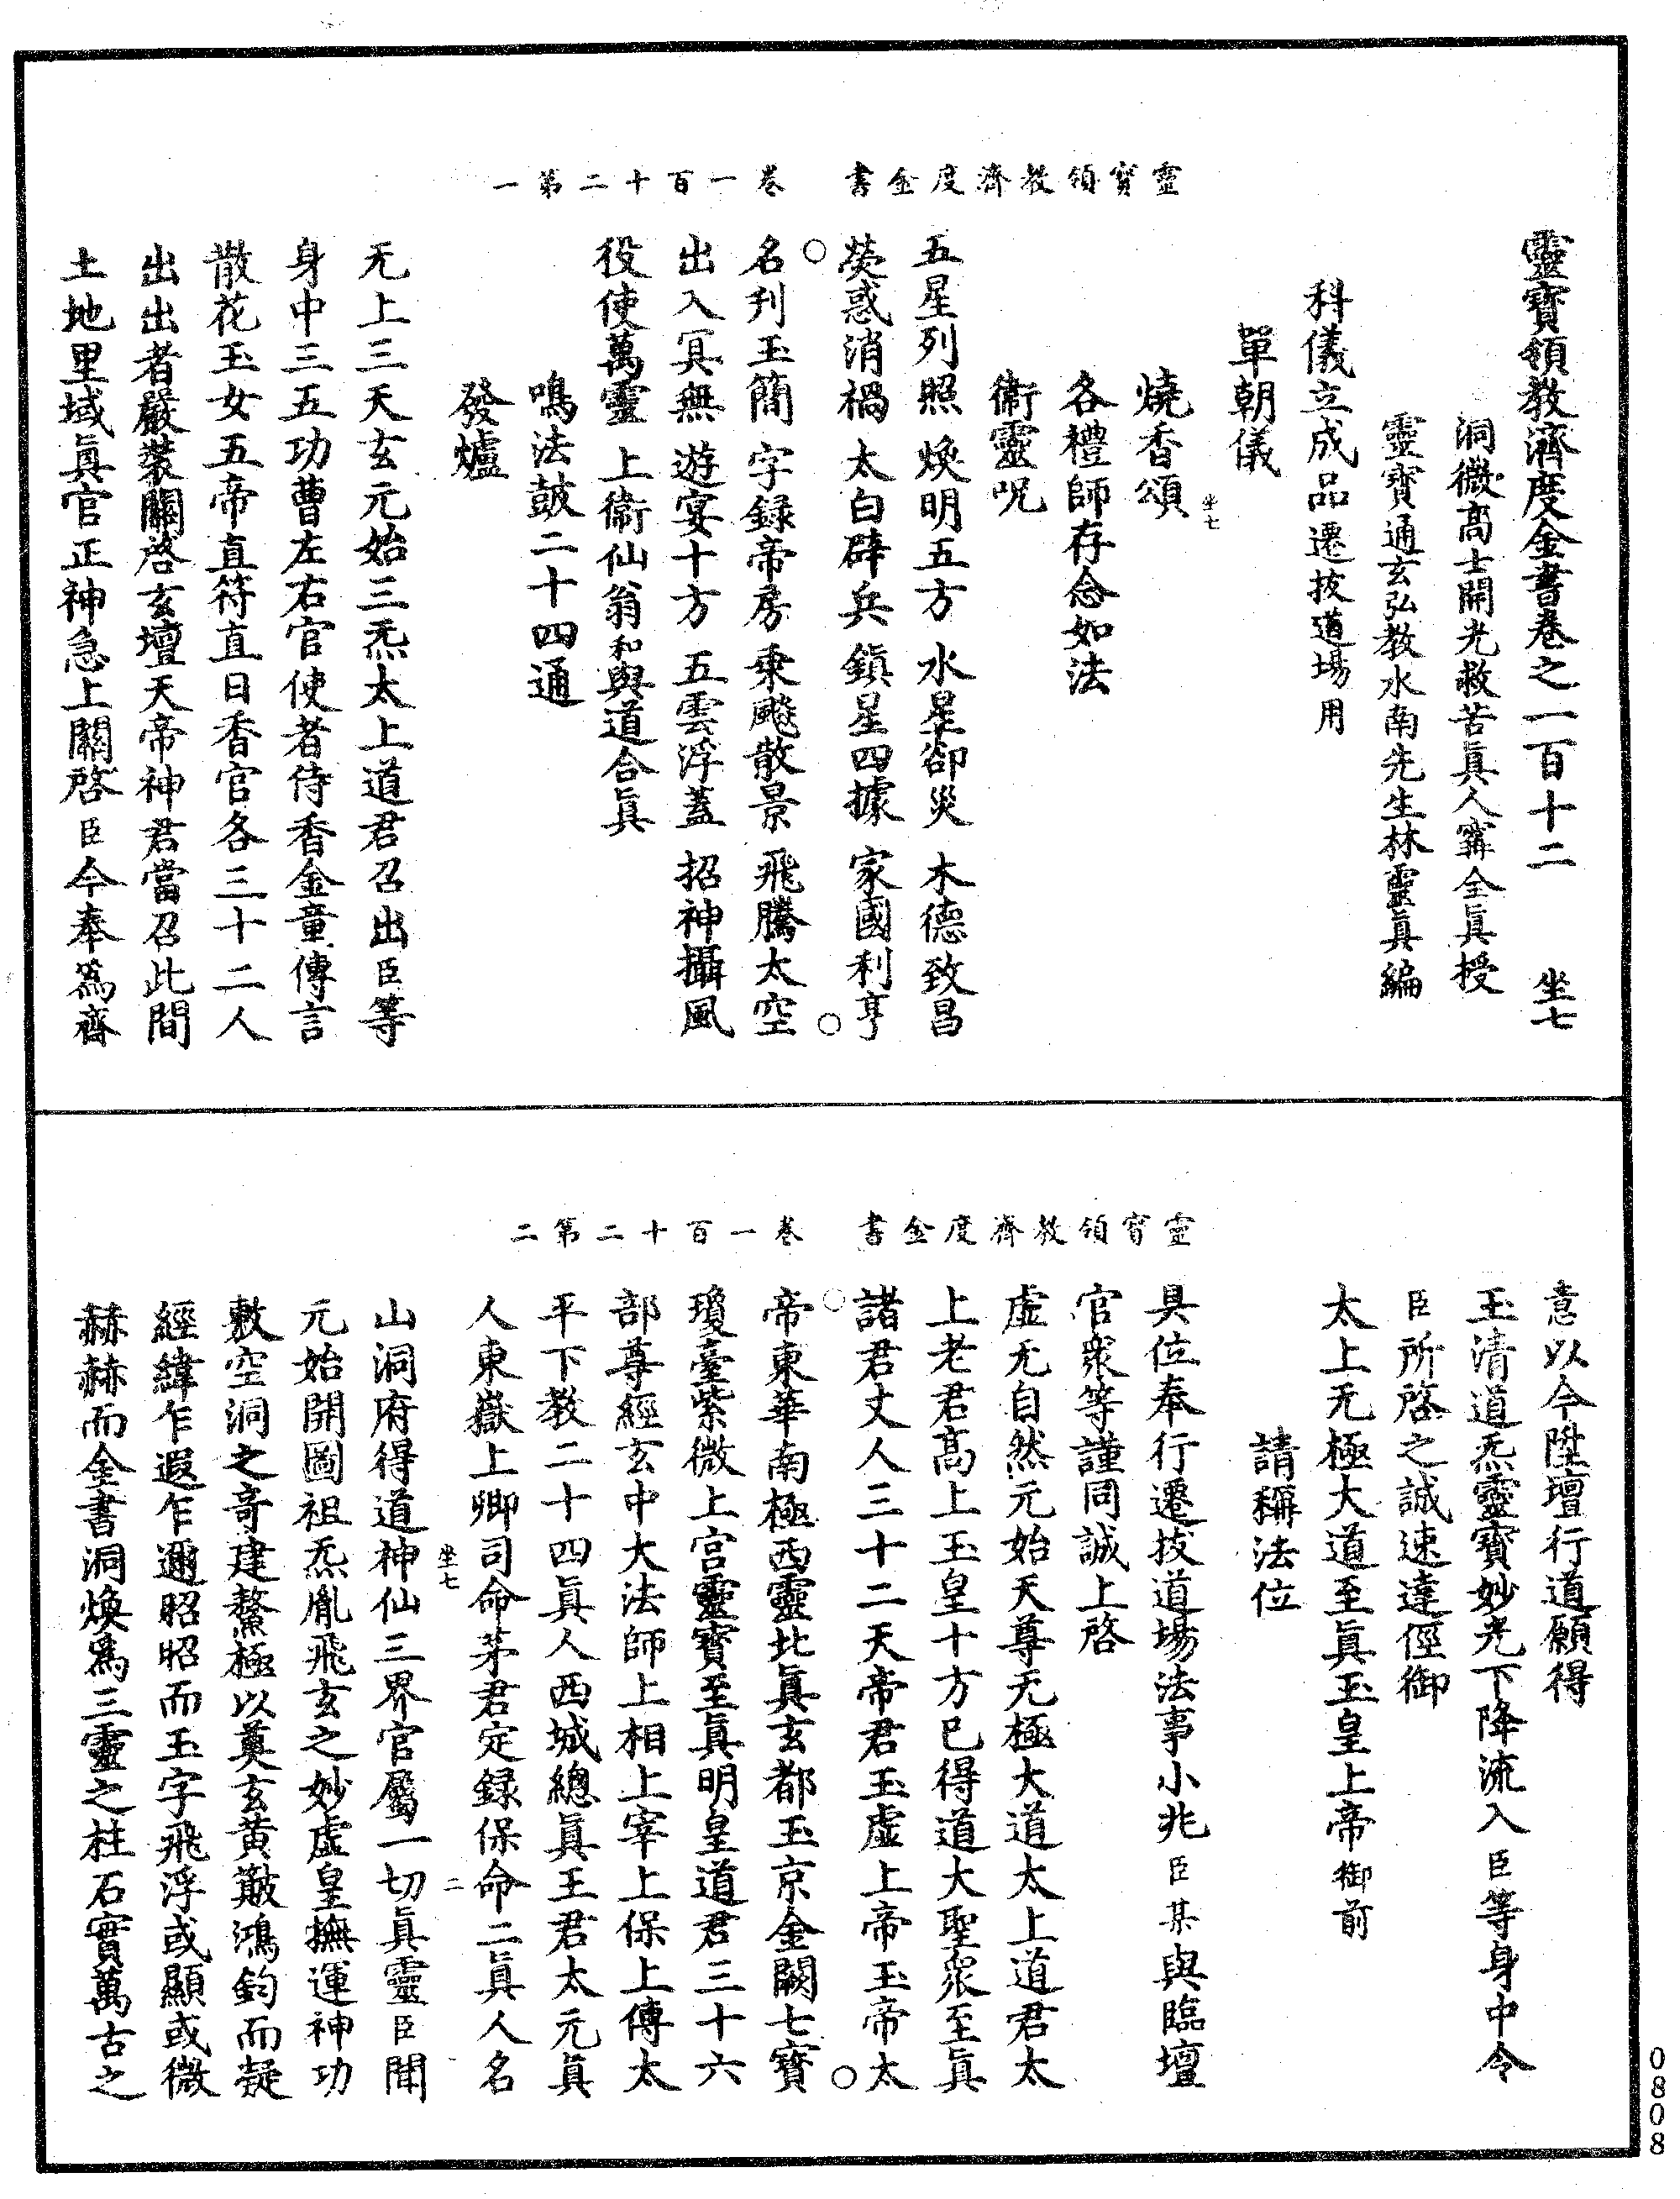 靈寶領教濟度金書 卷一百十二第一
靈寶領教濟度金書卷之一百十二 坐七
洞微高士開光救苦眞人甯全眞授
靈寶通玄弘教水南先生林靈眞編
科儀立成品遷拔道場用
單朝儀
坐七
燒香頌
各禮師存念如法
衞靈呪
五星列照 煥明五方 水星卻災 木德致昌
熒惑消禍 太白辟兵 鎮星四據 家國利亨
名刋玉簡 字録帝房 乗飈散景 飛騰太空
出入冥無 遊宴十方 五雲浮蓋 招神攝風
役使萬靈 上衞仙翁和與道合眞
鳴法鼓二十四通
發爐
无上三天玄元始三炁太上道君召出臣等
身中三五功曹左右官使者侍香金童傳言
散花玉女五帝直符直日香官各三十二人
出出者嚴裝關啓玄壇天帝神君當召此間
土地里域眞官正神急上關啓臣今奉爲齋
靈寶領教濟度金書 卷一百十二第二
意以今陞壇行道願得
玉清道炁靈寶妙光下降流入臣等身中令
臣所啓之誠速達徑御
太上无極大道至眞玉皇上帝御前
請稱法位
具位奉行遷拔道場法事小兆臣某與臨壇
官衆等謹同誠上啓
虛无自然元始天尊无極大道太上道君太
上老君高上玉皇十方已得道大聖衆至眞
諸君丈人三十二天帝君玉虛上帝玉帝太
帝東華南極西靈北眞玄都玉京金闕七寶
瓊臺紫微上宮靈寶至眞明皇道君三十六
部尊經玄中大法師上相上宰上保上傅太
平下教二十四眞人西城總眞王君太元眞
人東嶽上卿司命茅君定録保命二眞人名
坐七 二
山洞府得道神仙三界官屬一切眞靈臣聞
元始開圖祖炁胤飛玄之妙虛皇撫運神功
敷空洞之奇建鰲極以奠玄黄戴鴻鈞而凝
經緯乍遐乍邇昭昭而玉字飛浮或顯或微
赫赫而金書洞煥爲三靈之柱石實萬古之
0808